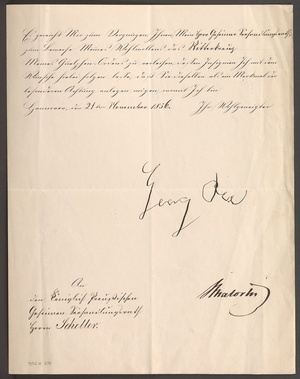 Es gereicht Mir zum Vergnügen Ihnen, Mein Herr Geheimer Seehandlungsrath,
zum Beweise Meines Wohlwollens das Ritterkreuz
Meines Guelphen-Ordens zu verleihen, dessen Insignien Ich mit dem
Wunsche hiebei folgen lasse, daß Sie dieselben als ein Merkmal der
besonderen Achtung annehmen mögen, womit Ich bin
Hannover, den 21ten November 1856. Ihr Wohlgeneigter
Georg Rex
An
den Königlich Preußischen
Geheimen Seehandlungsrath
Herrn Scheller.